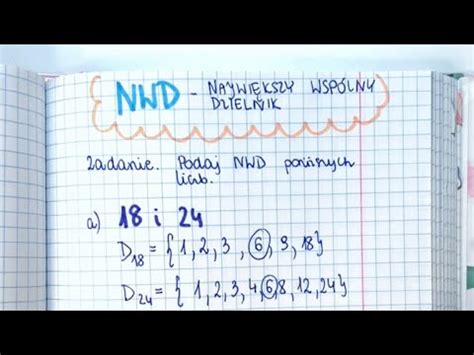 NWD - NAJWIĘKSZY WSPÓLNY
DZIELNIK
Zadanie. Podaj NWD poniższych
liczb.
a) 18 i 24
D18 = {1, 2, 3, 6, 9, 18}
D24 = {1, 2, 3, 4, 6, 8, 12, 24}